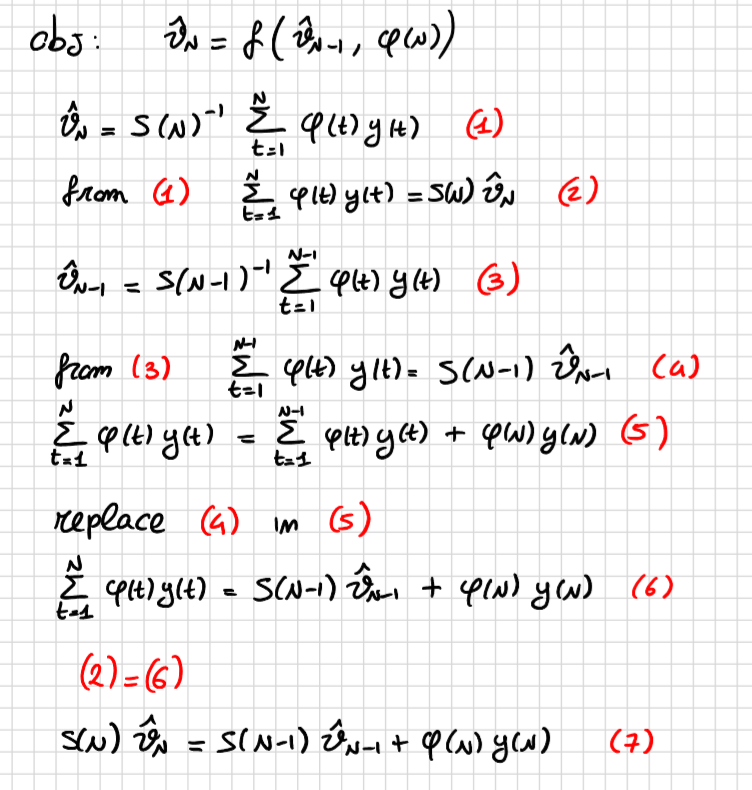 obj: ϑ̂_N = f(ϑ̂_{N-1}, φ(N))
ϑ̂_N = S(N)^{-1} ∑_{t=1}^{N} φ(t) y(t) (1)
from (1) ∑_{t=1}^{N} φ(t) y(t) = S(N) ϑ̂_N (2)
ϑ̂_{N-1} = S(N-1)^{-1} ∑_{t=1}^{N-1} φ(t) y(t) (3)
from (3) ∑_{t=1}^{N-1} φ(t) y(t) = S(N-1) ϑ̂_{N-1} (4)
∑_{t=1}^{N} φ(t) y(t) = ∑_{t=1}^{N-1} φ(t) y(t) + φ(N) y(N) (5)
replace (4) in (5)
∑_{t=1}^{N} φ(t) y(t) = S(N-1) ϑ̂_{N-1} + φ(N) y(N) (6)
(2)=(6)
S(N) ϑ̂_N = S(N-1) ϑ̂_{N-1} + φ(N) y(N) (7)